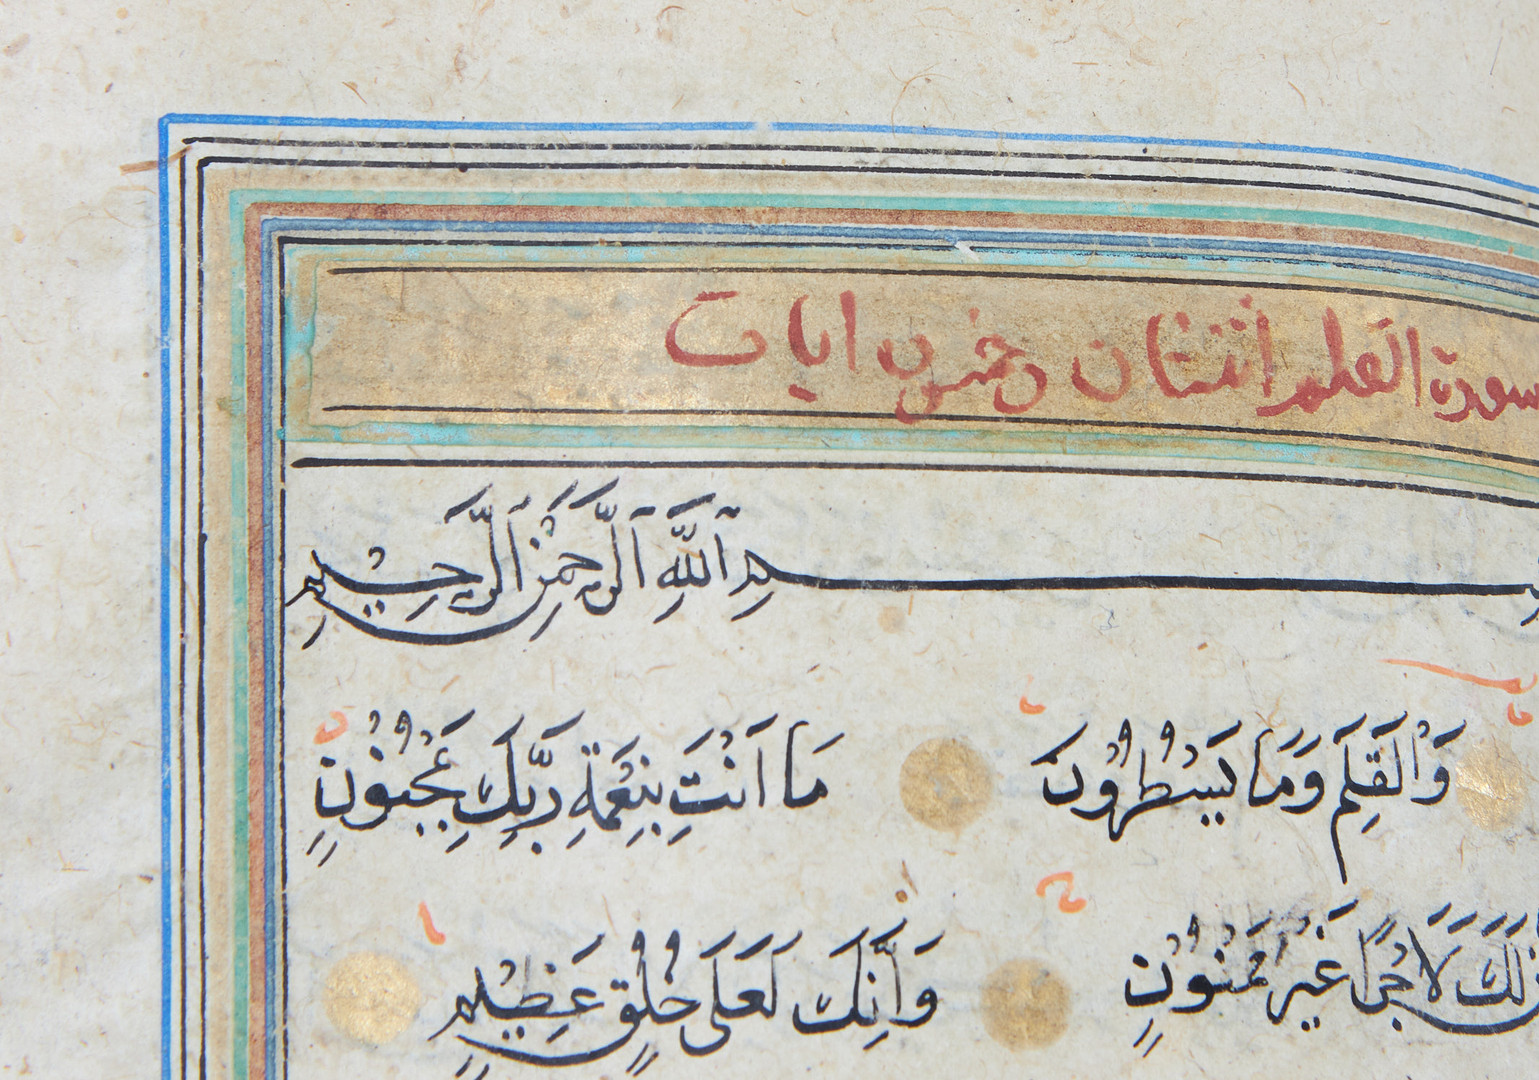 سورة القلم اثنتان وخمسون ايات
بسم ٱلله ٱلرَّحمٰنِ ٱلرَّحِيمِ
وَالْقَلَمِ وَمَا يَسْطُرُونَ مَا اَنْتَ بِنِعْمَةِ رَبِّكَ بِمَجْنُونٍ
لَكَ لَاَجْرًا غَيْرَ مَمْنُونٍ وَاِنَّكَ لَعَلَى خُلُقٍ عَظِيمٍ